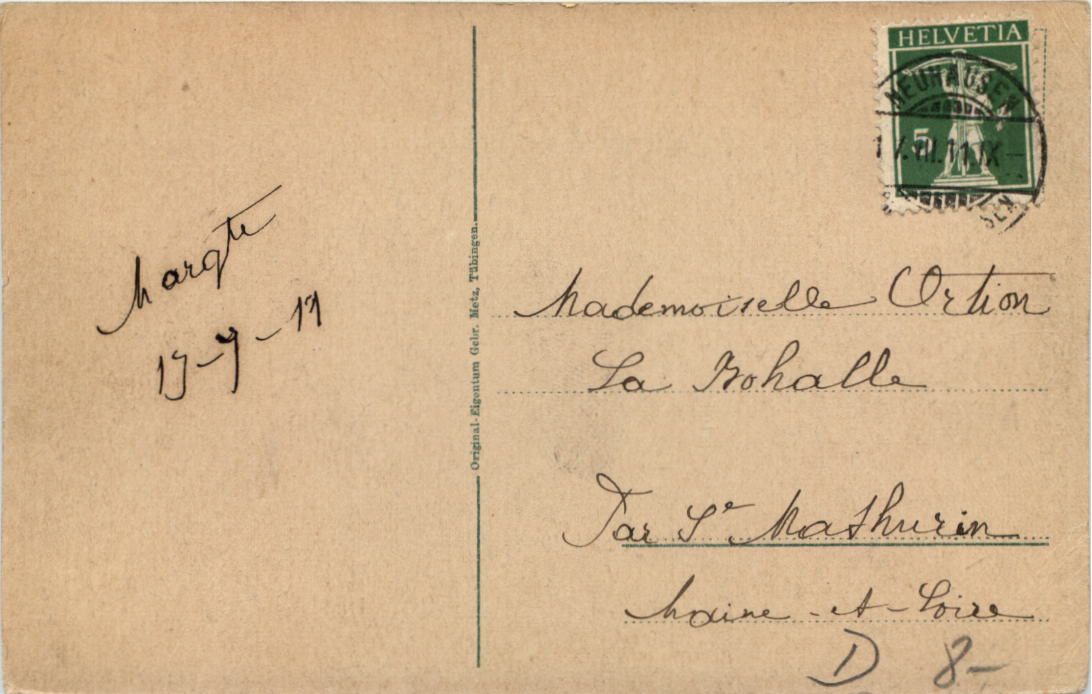 HELVETIA
NEUHAUSEN
5
VII.11.IX-
SEN
Margte
17-7-11
Original-Eigentum Gebr. Metz, Tübingen.
Mademoiselle Ortion
La Bohalle
Par St Mathurin
Maine-et-Loire
D 8-